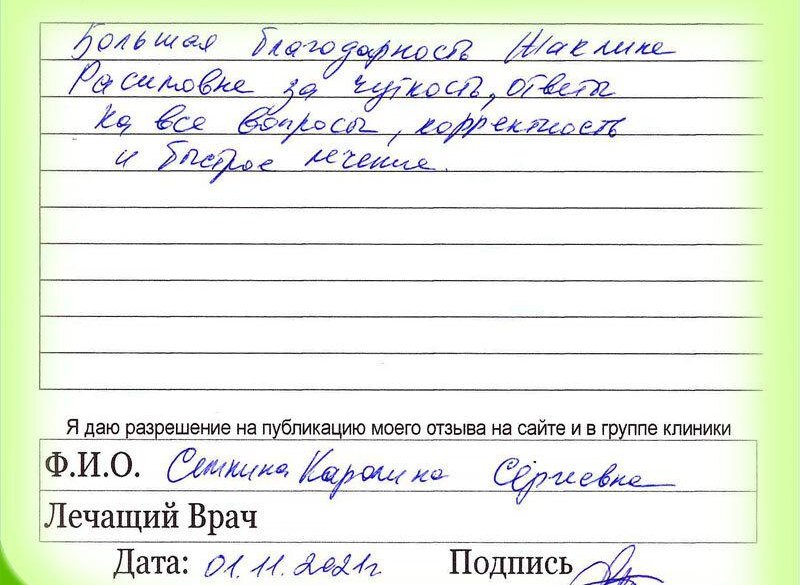 Большая благодарность Жаклине
Расиловне за чуткость, ответы
на все вопросы, корректность
и быстрое лечение.
Я даю разрешение на публикацию моего отзыва на сайте и в группе клиники
Ф.И.О. Каролина Сергиевна
Лечащий Врач
Дата: 01.11.2021г Подпись